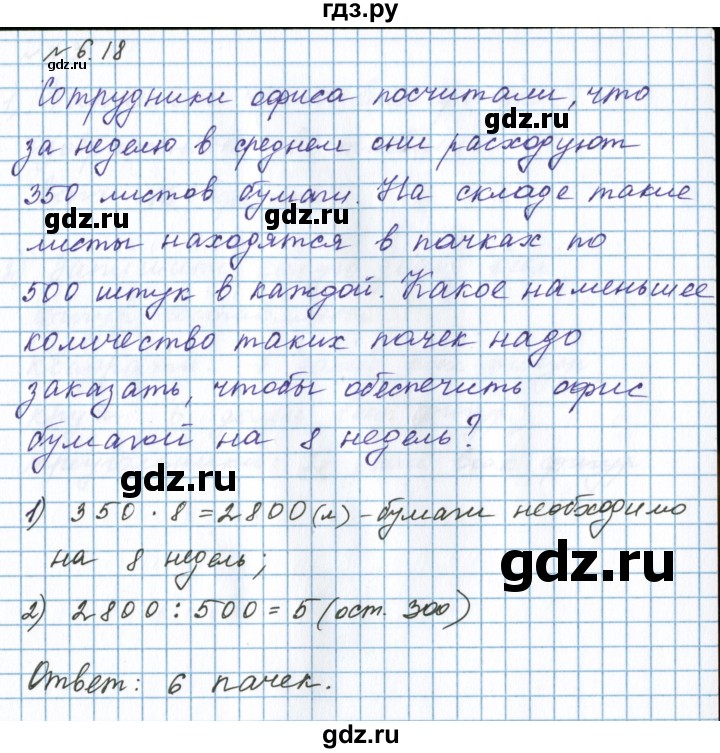 гдз.ру
№ 6.18
gdz.ru
Сотрудники офиса посчитали, что
gdz.ru
за неделю в среднем они расходуют
350 листов бумаги. На складе такие
gdz.ru gdz.ru
листы находятся в пачках по
500 штук в каждой. Какое наменьшее
количество таких пачек надо
заказать, чтобы обеспечить офис
бумагой на 8 недель?
gdz.ru
1) 350 · 8 = 2800 (л) - бумаги необходимо
на 8 недель;
gdz.ru
2) 2800 : 500 = 5 (ост. 300)
Ответ: 6 пачек.
gdz.ru
gdz.ru